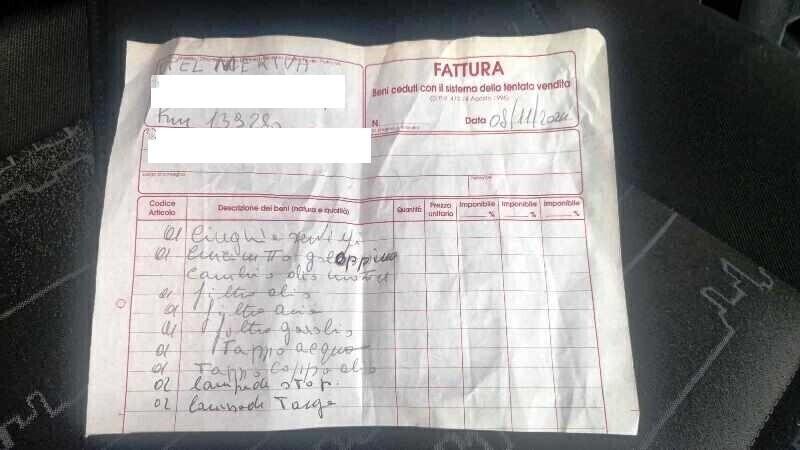 OPEL MERIVA
FATTURA
Beni ceduti con il sistema della tentata vendita
Km 13928
N.
Data 08/11/2024
Codice Articolo
Descrizione dei beni (natura e qualità)
Quantità
Prezzo unitario
Imponibile %
Imponibile %
Imponibile %
01 Cinghia servizi
01 Cinghietta
Cambio olio motore
01 filtro olio
01 filtro aria
01 filtro gasolio
01 Tappo acqua
01 Tappo coppa olio
02 lampade stop.
02 lampade Targa